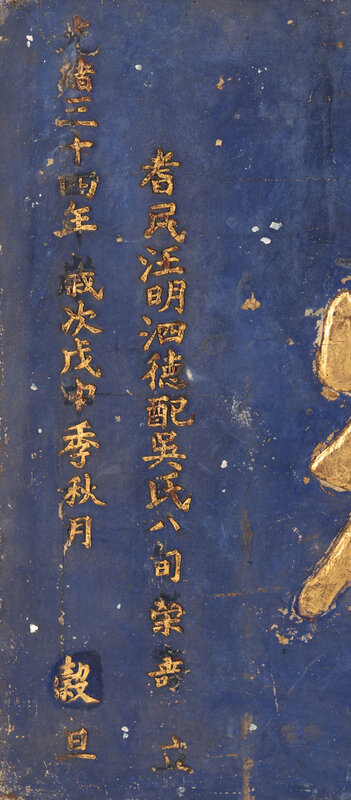 耆民汪明泗德配吳氏八旬榮壽 立
光緒三十四年歲次戊申季秋月 穀旦